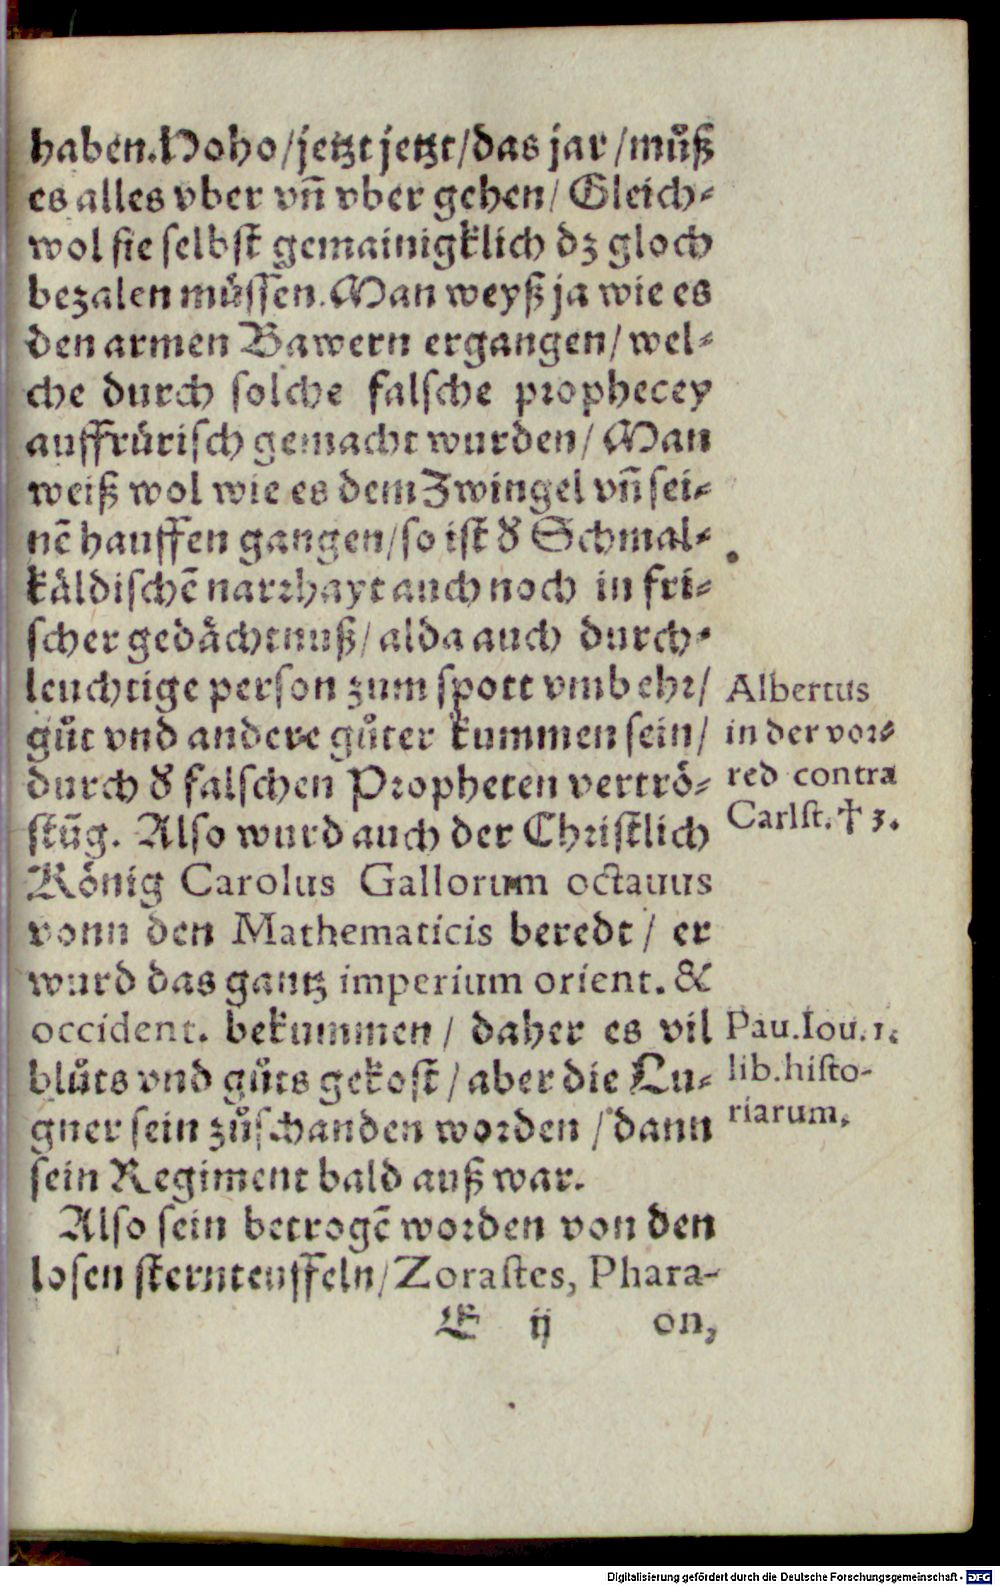 haben. Hoho/jetzt jetzt/das jar/můß
es alles vber vñ vber gehen/ Gleich⸗
wol sie selbst gemainigklich dz gloch
bezalen müssen. Man weyß ja wie es
den armen Bawern ergangen/ wel⸗
che durch solche falsche prophecey
auffrürisch gemacht wurden/ Man
weiß wol wie es dem Zwingel vñ sei⸗
nẽ hauffen gangen/so ist d' Schmal⸗
käldischẽ narrhayt auch noch in fri⸗
scher gedächtnuß/ alda auch durch⸗
leuchtige person zum spott vmb ehr/
gůt vnd andere gůter kummen sein/
durch d' falschen Propheten vertrö⸗
stũg. Also wurd auch der Christlich
König Carolus Gallorum octauus
vonn den Mathematicis beredt/ er
wurd das gantz imperium orient. &
occident. bekummen/ daher es vil
blůts vnd gůts gekost/ aber die Lu⸗
gner sein zůschanden worden/ dann
sein Regiment bald auß war.
Also sein betrogẽ worden von den
losen sternteuffeln/ Zorastes, Phara-
E ij on,
Albertus
in der vor⸗
red contra
Carlst. ✝ 3.
Pau. Iou. 1.
lib. histo-
riarum.
Digitalisierung gefördert durch die Deutsche Forschungsgemeinschaft - DFG